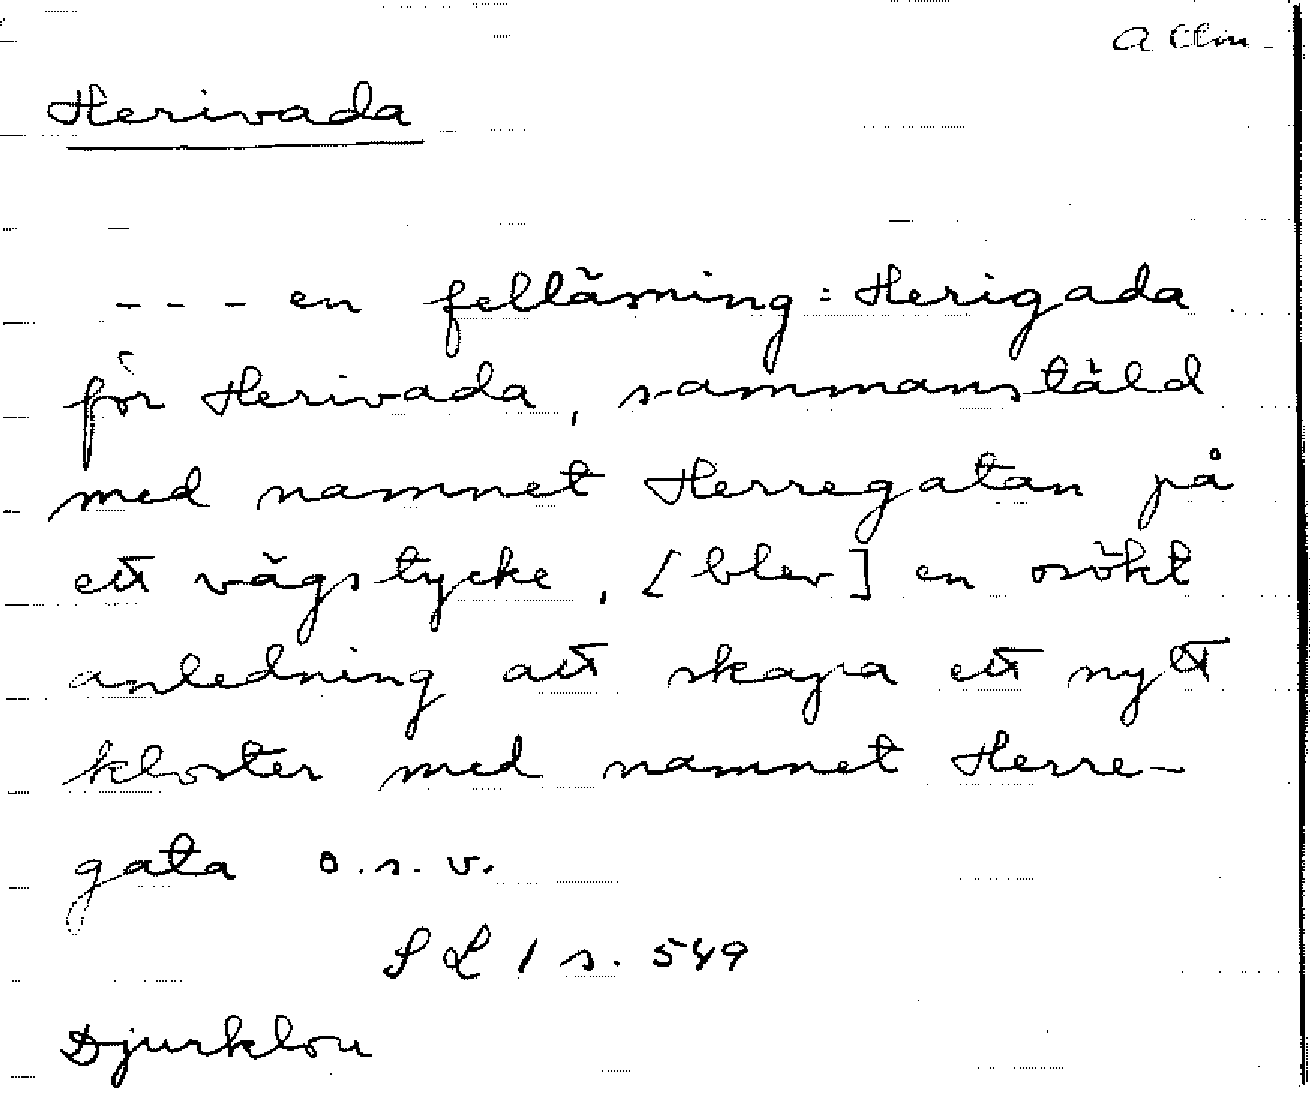 Allm.
Herivada
- - - en felläsning: Herigada
för Herivada, sammanstäld
med namnet Herregatan på
ett vägstycke, [blev] en osökt
anledning att skapa ett nytt
kloster med namnet Herre-
gata o.s.v.
SL 1 s. 549
Djurklou